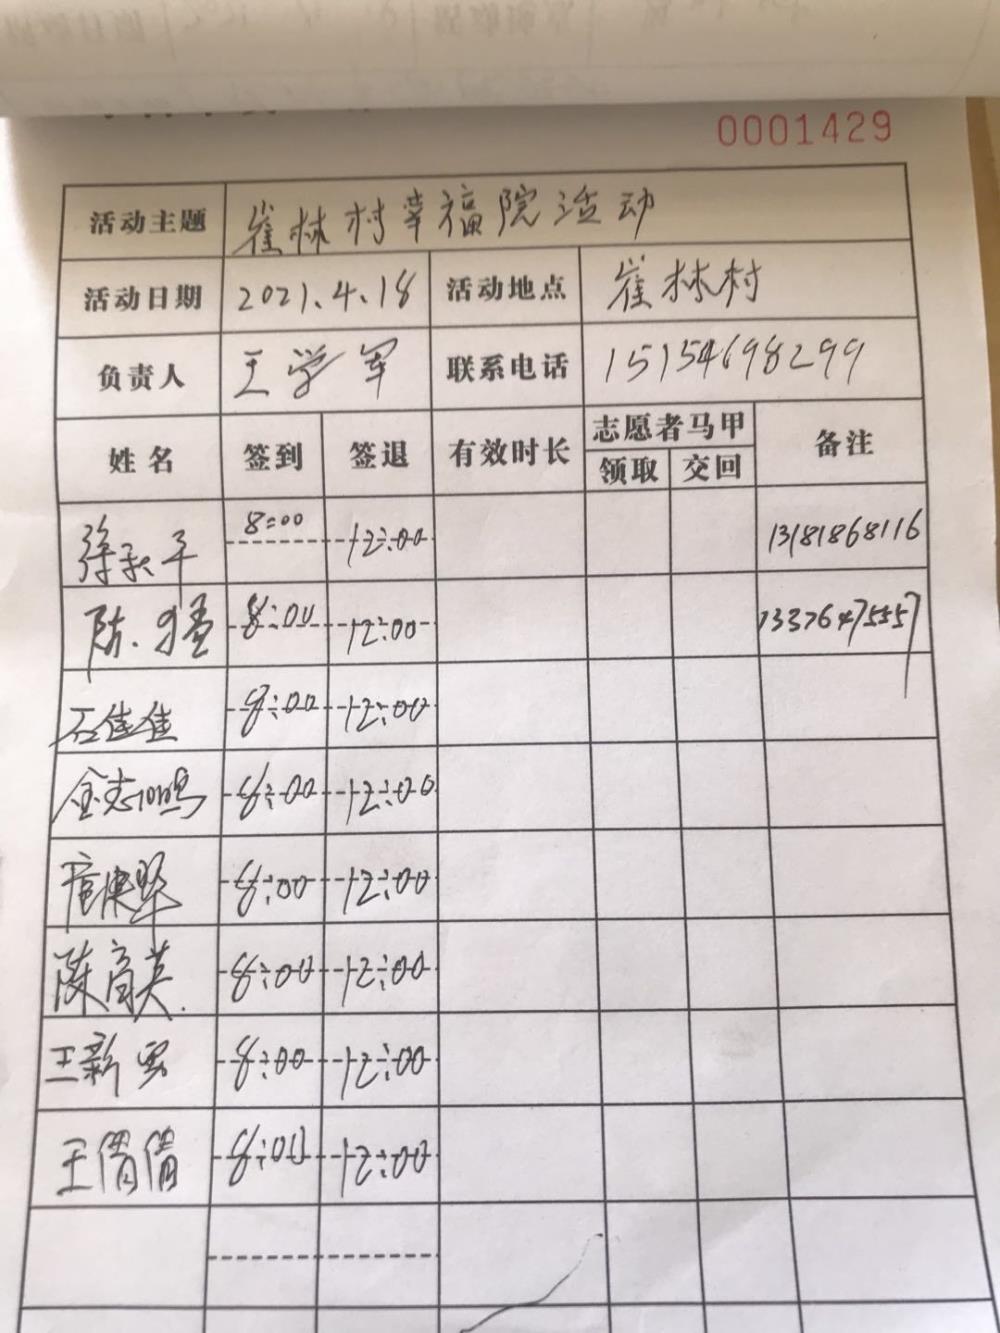 0001429
活动主题 崔林村幸福院活动
活动日期 2021.4.18 活动地点 崔林村
负责人 王学军 联系电话 15154698299
姓名 签到 签退 有效时长 志愿者马甲 备注
领取 交回
8:00 12:00 13181868116
陈 8:00 12:00 13376475557
石佳佳 8:00 12:00
金志鹏 8:00 12:00
8:00 12:00
陈育英 8:00 12:00
王新 8:00 12:00
王倩倩 8:00 12:00